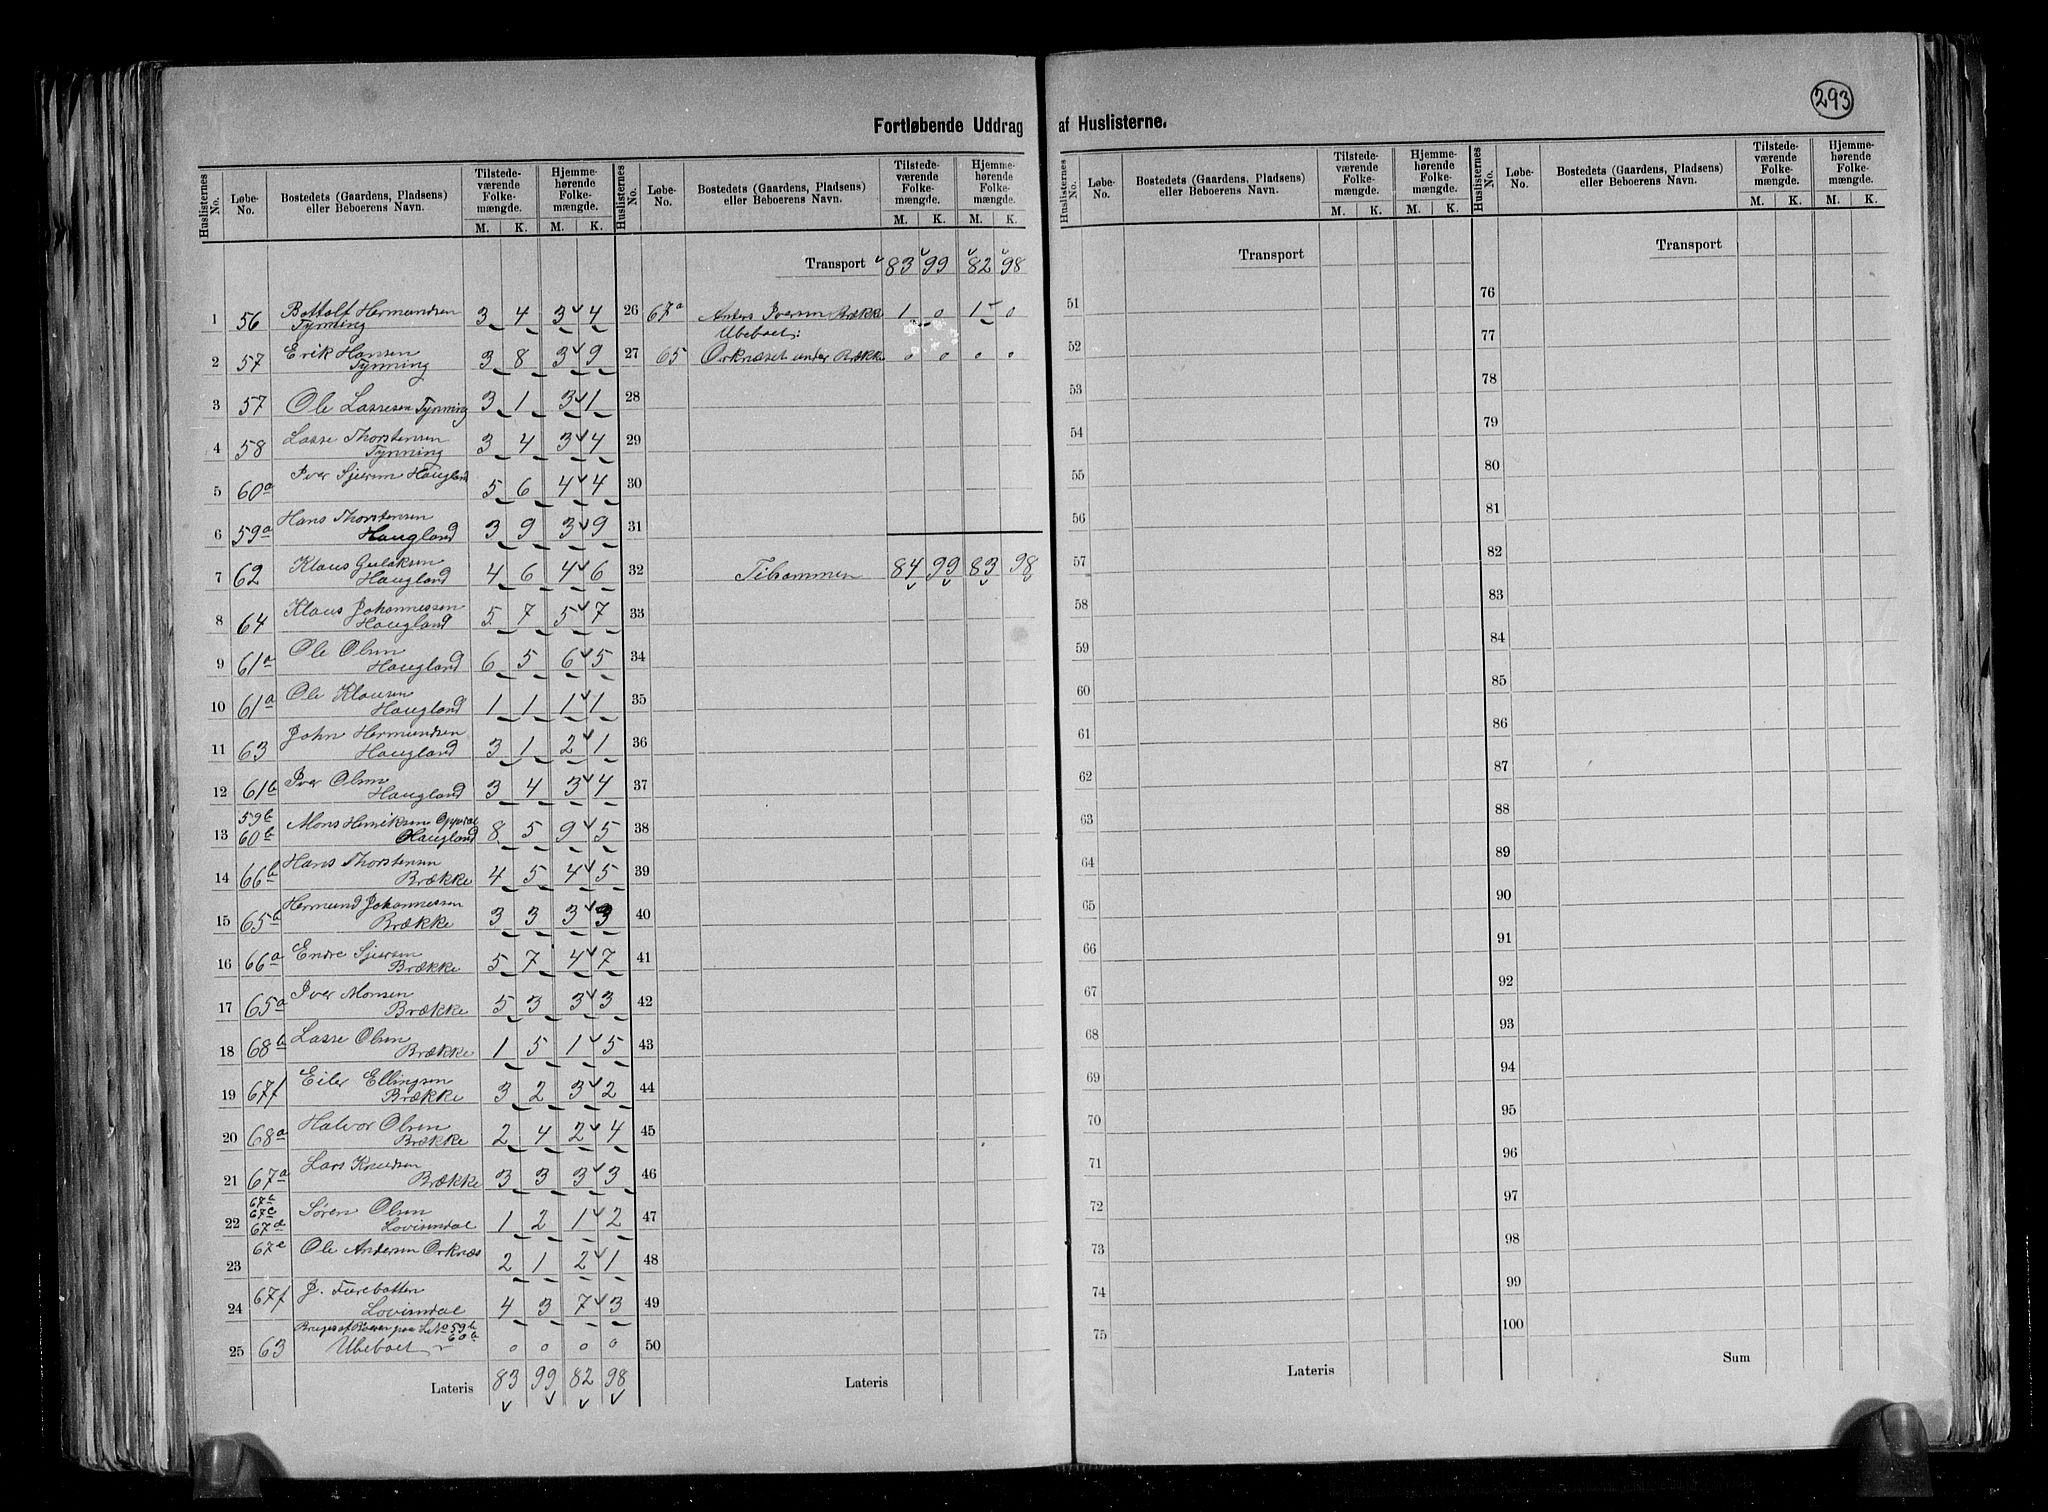 293
Fortløbende Uddrag af Huslisterne.
Huslisternes No. Løbe-No. Bostedets (Gaardens, Pladsens) eller Beboerens Navn. Tilstedeværende Folkemængde. M. K. Hjemmehørende Folkemængde. M. K.
Huslisternes No. Løbe-No. Bostedets (Gaardens, Pladsens) eller Beboerens Navn. Tilstedeværende Folkemængde. M. K. Hjemmehørende Folkemængde. M. K.
1 56 Bottolf Hermundsen Tynning 3 4 3 4
2 57 Erik Hansen Tynning 3 8 3 9
3 57 Ole Lassesen Tynning 3 1 3 1
4 58 Lasse Thorstensen Tynning 3 4 3 4
5 60a Iver Sjursen Haugland 5 6 4 4
6 59a Hans Thorstensen Haugland 3 9 3 9
7 62 Klaus Gulaksen Haugland 4 6 4 6
8 64 Klaus Johannessen Haugland 5 7 5 7
9 61a Ole Olsen Haugland 6 5 6 5
10 61a Ole Klausen Haugland 1 1 1 1
11 63 John Hermundsen Haugland 3 1 2 1
12 61b Iver Olsen Haugland 3 4 3 4
13 59b 60b Mons Henriksen Opdal Haugland 8 5 9 5
14 66b Hans Thorstensen Brække 4 5 4 5
15 65b Hermund Johannessen Brække 3 3 3 3
16 66a Endre Sjursen Brække 5 7 4 7
17 65a Iver Monsen Brække 5 3 3 3
18 68b Lasse Olsen Brække 1 5 1 5
19 67f Eiler Ellingsen Brække 3 2 3 2
20 68a Halvor Olsen Brække 2 4 2 4
21 67a Lars Knudsen Brække 3 3 3 3
22 67b 67c 67d Søren Olsen Lovisendal 1 2 1 2
23 67e Ole Andersen Orknæs 2 1 2 1
24 67f J. Farebotten Lovisendal 4 3 7 3
25 63 Bruges af Boeren paa L. No 59b 60b Ubeboet 0 0 0 0
Lateris 83 99 82 98
Transport 83 99 82 98
26 67a Anders Iversen Brække 1 0 1 0
Ubeboet:
27 65 Orknæset under Brække 0 0 0 0
28
29
30
31
32 Tilsammen 84 99 83 98
33
34
35
36
37
38
39
40
41
42
43
44
45
46
47
48
49
50
Lateris
Huslisternes No. Løbe-No. Bostedets (Gaardens, Pladsens) eller Beboerens Navn. Tilstedeværende Folkemængde. M. K. Hjemmehørende Folkemængde. M. K.
Transport
51
52
53
54
55
56
57
58
59
60
61
62
63
64
65
66
67
68
69
70
71
72
73
74
75
Lateris
Huslisternes No. Løbe-No. Bostedets (Gaardens, Pladsens) eller Beboerens Navn. Tilstedeværende Folkemængde. M. K. Hjemmehørende Folkemængde. M. K.
Transport
76
77
78
79
80
81
82
83
84
85
86
87
88
89
90
91
92
93
94
95
96
97
98
99
100
Sum